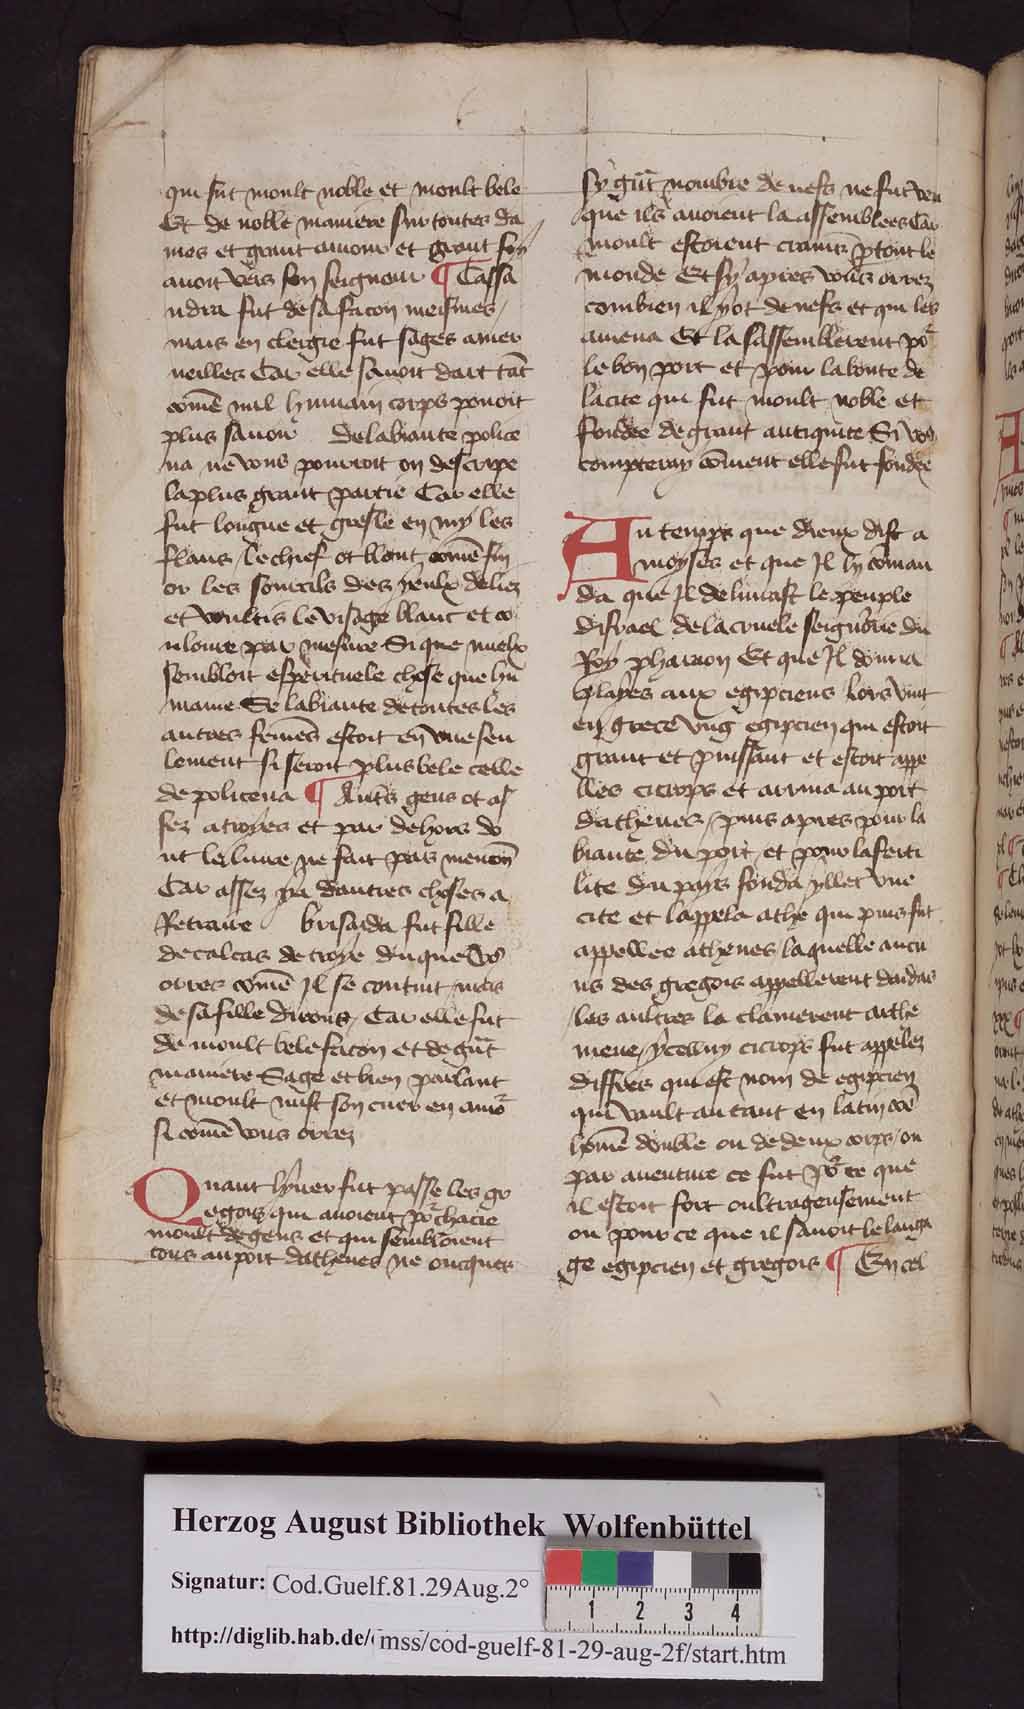 qui fut moult noble et moult bele
Et de noble maniere sur toutes da
mes et grant amour et grant foy
auoit vers son seigneur ¶ Cassa
ndra fut de sa facon meismes /
mais en clergie fut sages a mer
ueilles Car elle sauoit dart tāt
comē nul humain corps pouoit
plus sauoir de la biaute police
na ne vous pourroit on descripe
la plus grant partie Car elle
fut longue et gresle en my les
flans / le chief ot blont comē fin
or les sourcils des yeulx deliez
et voultis le visage blanc et co
uloure par mesure Si que mielx
sembloit esperituele chose que hu
maine Se la biaute de toutes les
autres femēs estoit en vne seu
lement si seroit plus bele celle
de policena ¶ Autˢ gens ot as
sez a troyes et par dehors do
nt le liure ne fait pas mencōn
Car assez ya dautres choses a
Retraire brisaida fut fille
de calcas de troye duque voꝰ
orres comē Il se contint / mais
de sa fille dirons / Car elle fut
de moult bele facon et de gūt
maniere Sage et bien parlant
et moult mist son cuer en amoʳ
si comē vous orrez
Quant lyuer fut passe les gr
egois qui auoient poʳchacie
moult de gens et qui sembloient
tous au port dathenes ne oncques
sy gūt nombre de nefs ne fut veu
que ils auoient la assemblees Car
moult estoient cramis p̄ tout le
monde Et sy apres vous orrez
combien il yot de nefs et qui les
amena Et la sassemblerent poʳ
le bon port et pour la bonte de
la cite qui fut moult noble et
fondee de grant antiquite Si voꝰ
compteray cōment elle fut fondee
Au temps que dieux dist a
moyses et que Il ly cōman
da que Il deliurast le peuple
disrael de la cruele seignorie du
Roy pharaon Et que Il donna
playes aux egipciens lors vint
en grece vng egipcien qui estoit
grant et puissant et estoit appe
lles cicrops et arriua au port
dathenes / puis apres pour la
biaute du port et pour la ferti
lite du pays fonda yllec vne
cite et lappela athe qui puis fut
appellee athenes laquelle aucu
ns des gregois appellerent dardas
/ les aultres la clamerent arthe
mene / ycelluy cicrops fut appelez
diffees qui est nom de egipcien
qui vault autant en latin cōe
homē double ou de deux corps / ou
par auenture ce fut poʳ ce que
il estoit fort oultrageusement
ou pour ce que il sauoit le langa
ge egipcien et gregois ¶ En cel
Herzog August Bibliothek Wolfenbüttel
Signatur: Cod.Guelf.81.29Aug.2°
1 2 3 4
http://diglib.hab.de/mss/cod-guelf-81-29-aug-2f/start.htm